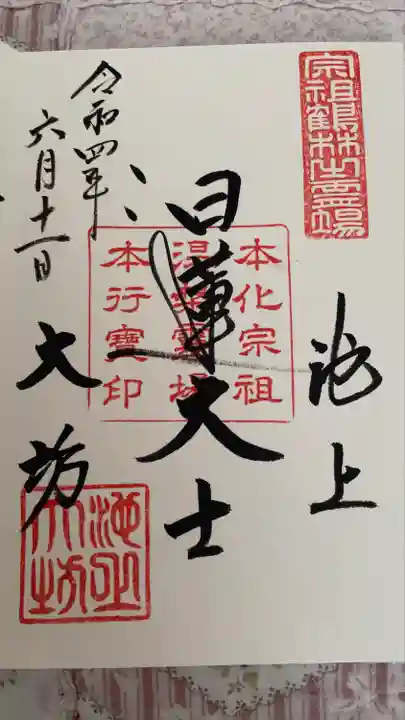 宗祖鶴林出霊場
池上
本化宗祖
涅槃霊場
本行寶印
日蓮大士
大坊
池上
大坊
令和四年
六月十一日